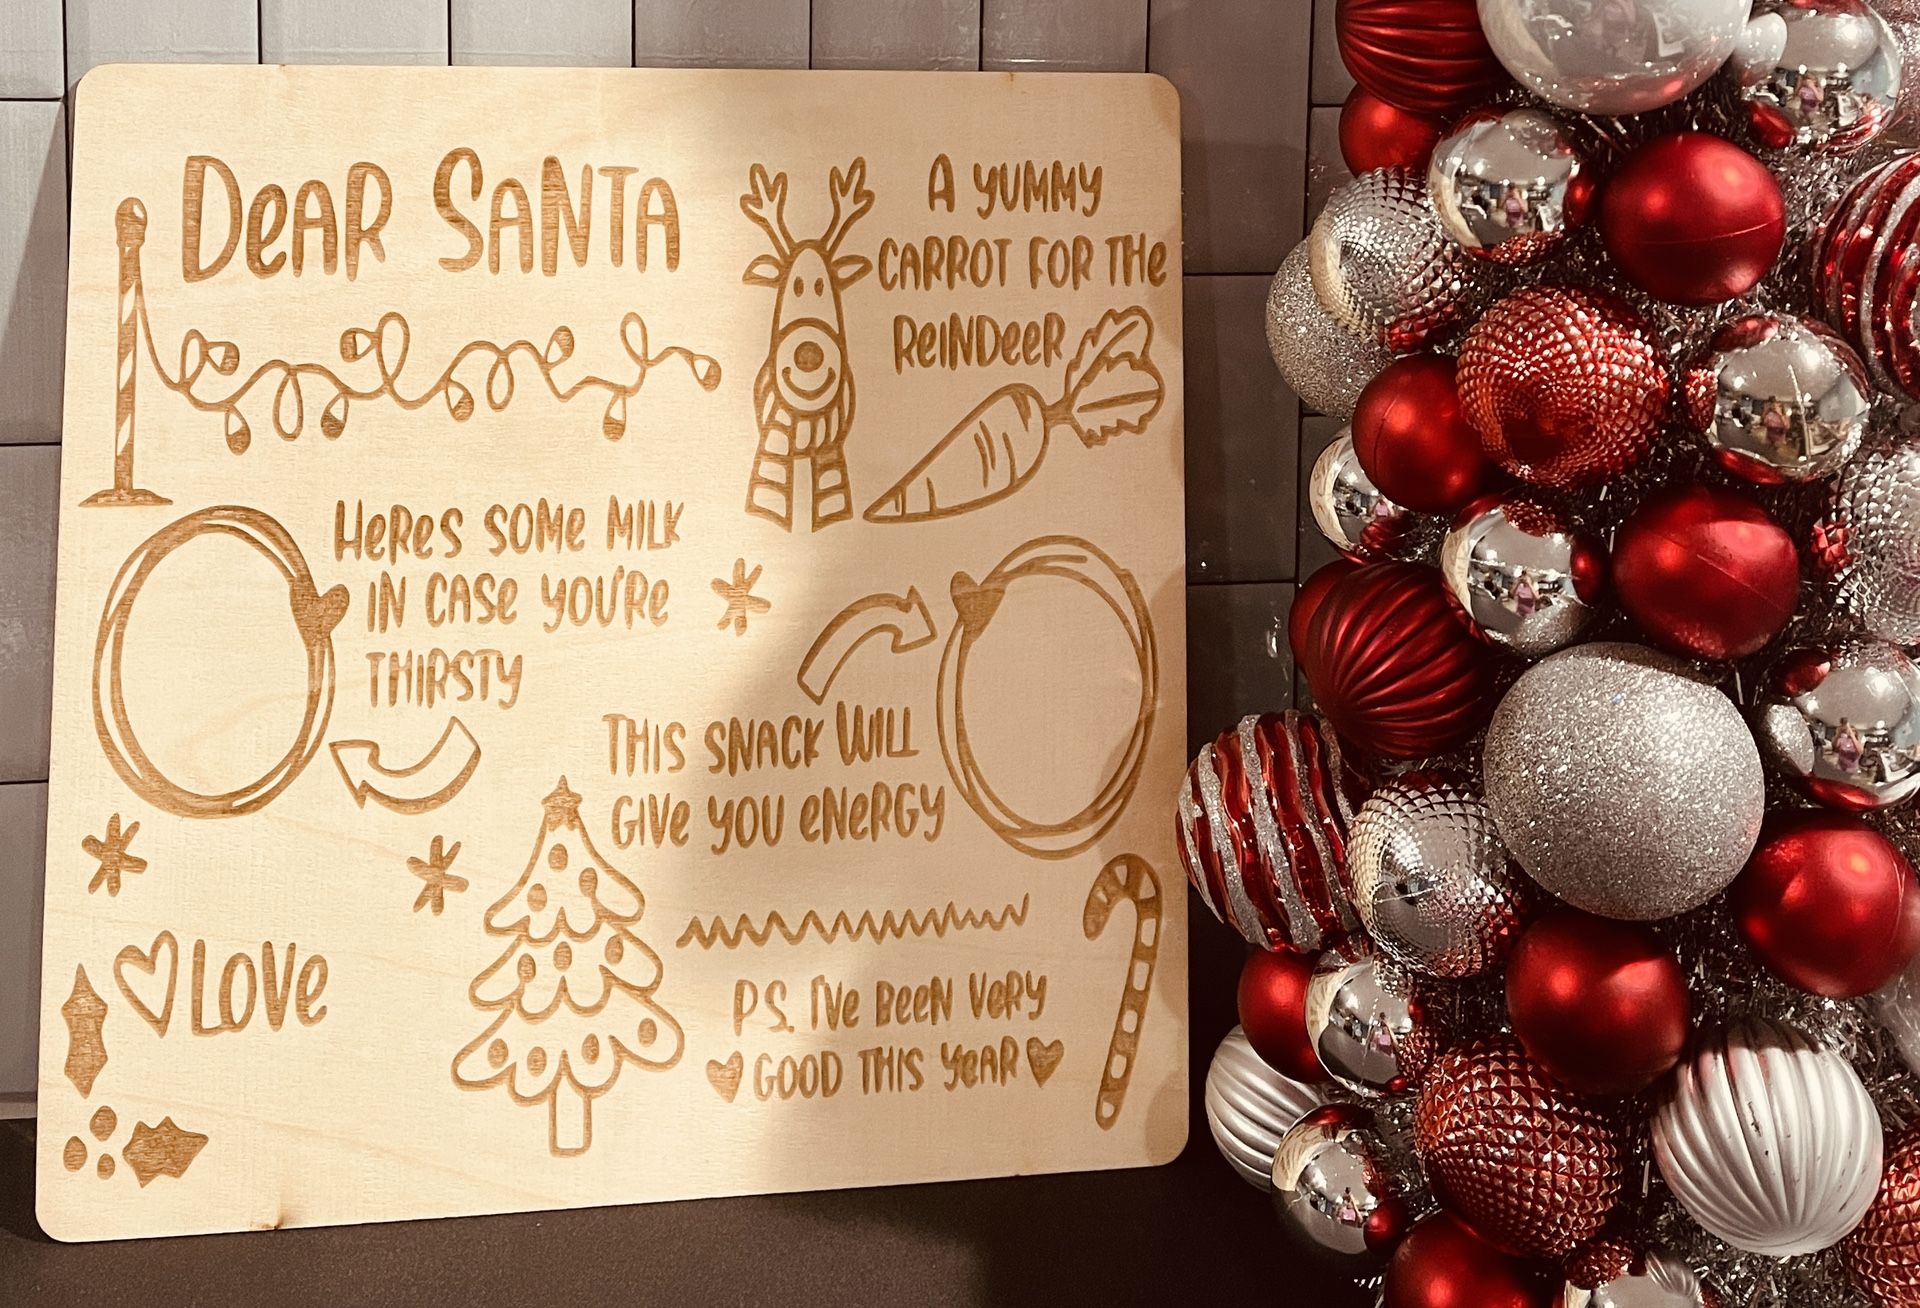 Dear Santa
A yummy
carrot for the
reindeer
Heres some milk
in case you're
thirsty
This snack will
give you energy
Love
P.S. I've been very
good this year